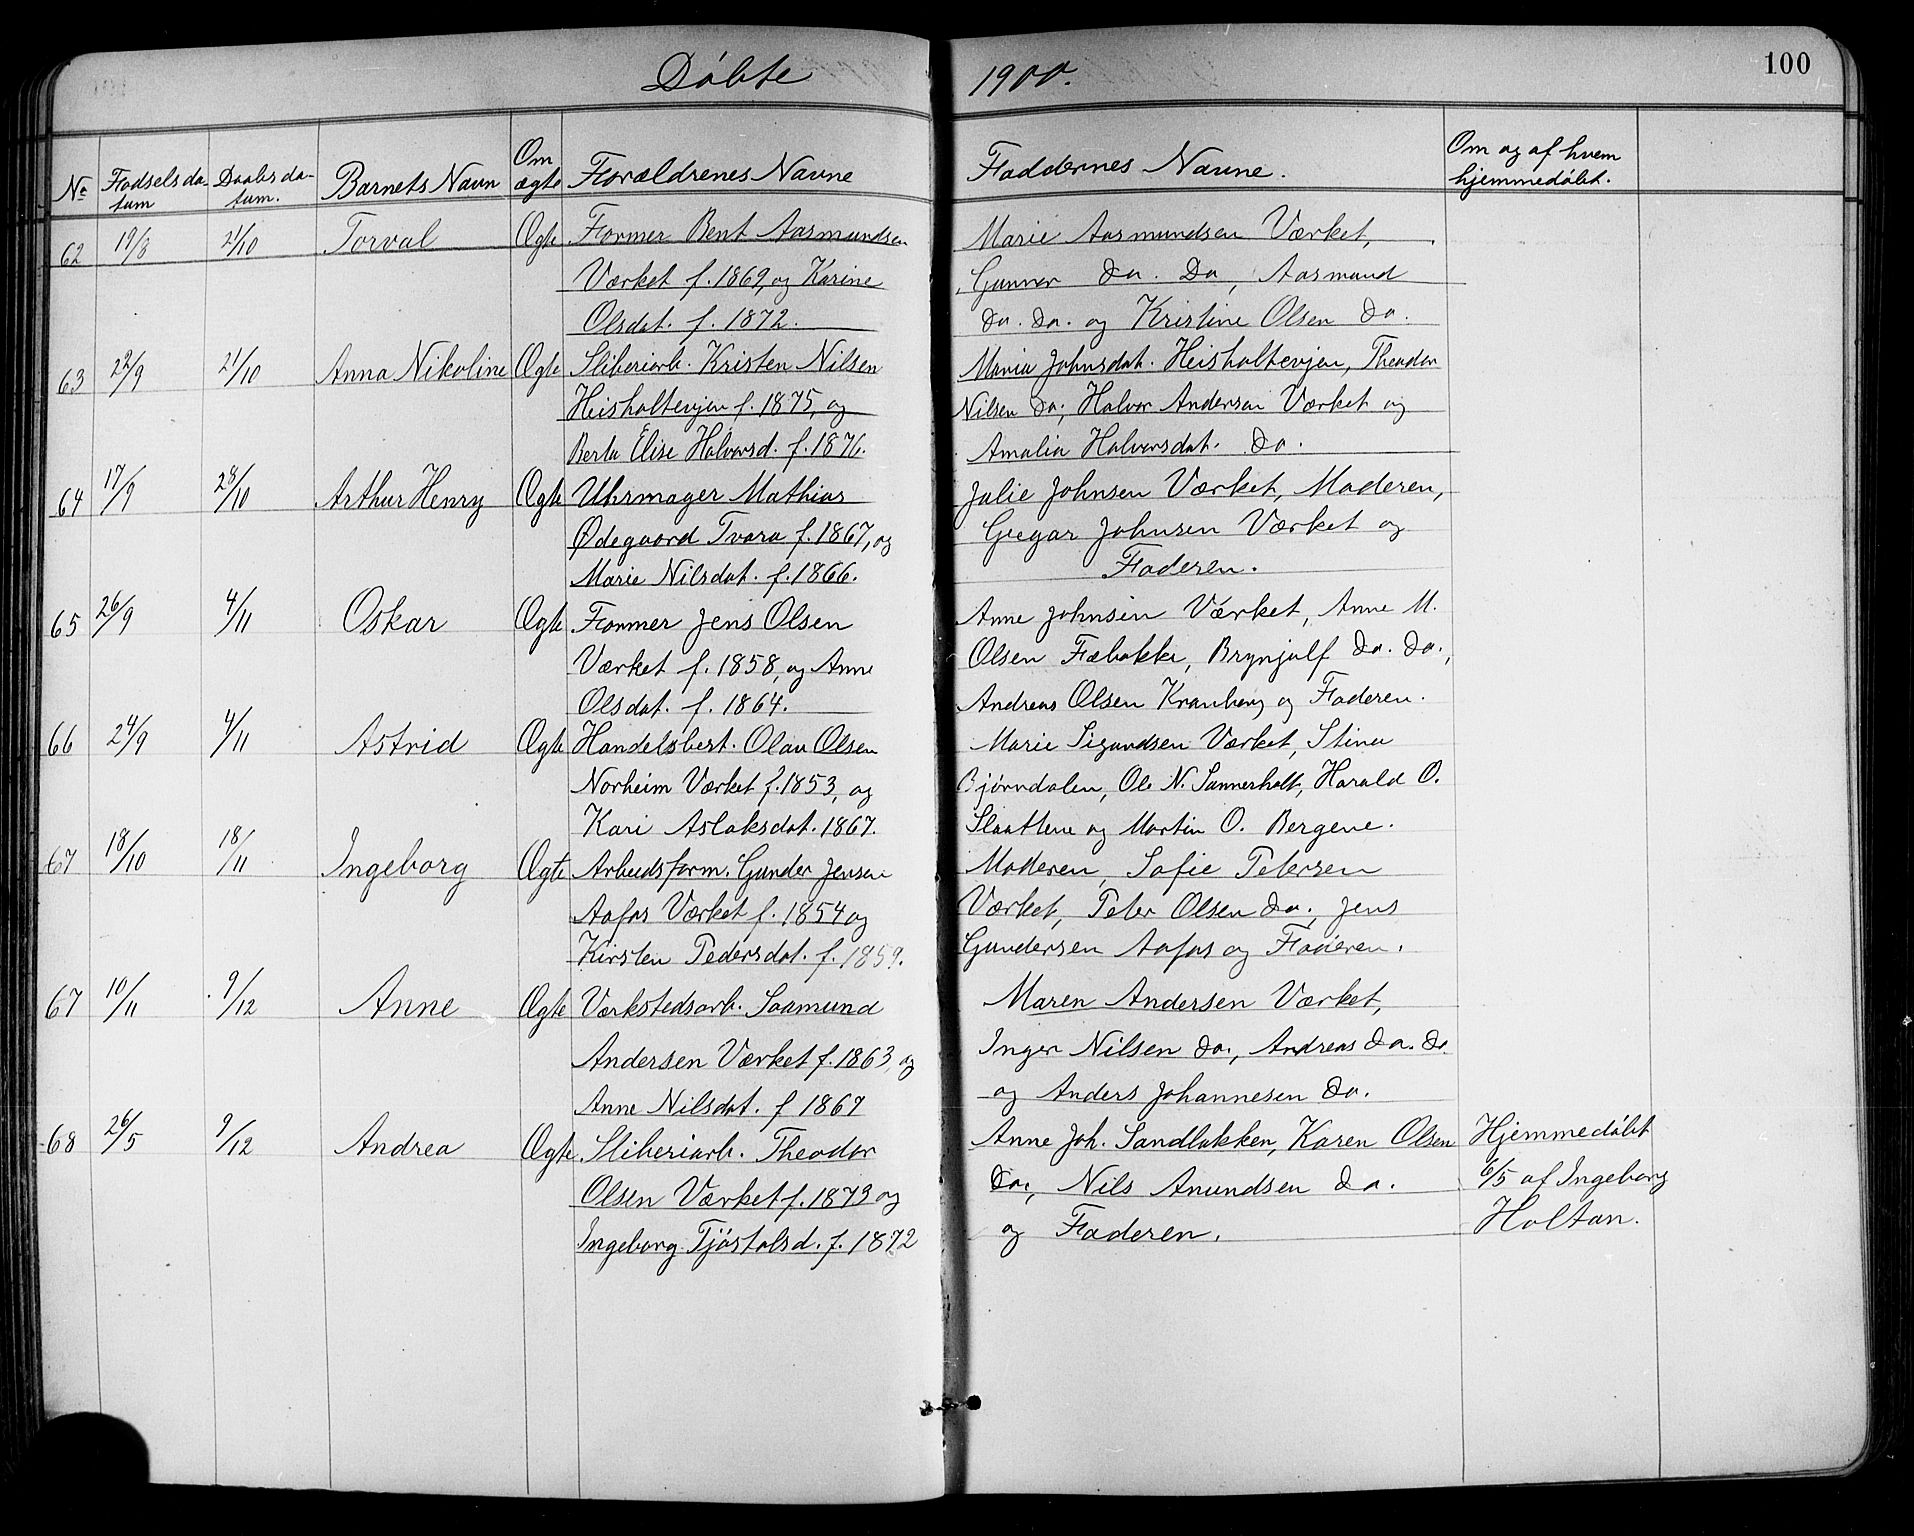 Döbte 1900. 100
Nº Födselsda- Daabsda- Barnets Navn Om Forældrenes Navne Faddernes Navne. Om og af hvem
tum tum. ægte hjemmedöbt.
62 19/8 21/10 Torval Ægte Former Bent Aasmundsen Marie Aasmundsen Værket,
Værket f. 1869, og Karine Gunner do. Do, Aasmund
Olsdat. f. 1872. do. do. og Kristine Olsen do.
63 22/9 21/10 Anna Nikoline Ægte Sliberiarb. Kristen Nilsen Maria Johnsdat. Heisholtevjen, Theodor
Heisholtevjen f. 1875, og Nilsen do; Halvor Andersen Værket og
Berta Elise Halvorsd. f. 1876. Amalia Halvorsdat. do.
64 17/9 28/10 Arthur Henry Ægte Uhrmager Mathias Julie Johnsen Værket, Moderen,
Ødegaard Tvara f. 1867, og Gregar Johnsen Værket og
Marie Nilsdat. f. 1866. Faderen.
65 26/9 4/11 Oskar Ægte Former Jens Olsen Anne Johnsen Værket, Anne M.
Værket f. 1858, og Anne Olsen Fæbakke, Brynjulf do. do.,
Olsdat. f. 1864. Andreas Olsen Kranberg og Faderen.
66 24/9 4/11 Astrid Ægte Handelsbest. Olav Olsen Marie Sigundsen Værket, Stina
Norheim Værket f. 1853, og Bjørndalen, Ole N. Sannerholt, Harald O.
Kari Aslaksdat. 1867. Slaattene og Martin O. Bergene.
67 18/10 18/11 Ingeborg Ægte Arbeidsform. Gunder Jensen Moderen, Sofie Petersen
Aafos Værket f. 1854 og Værket, Peter Olsen do., Jens
Kirsten Pedersdat. f. 1859. Gundersen Aafos og Faderen.
67 10/11 9/12 Anne Ægte Værkstedsarb. Saamund Maren Andersen Værket,
Andersen Værket f. 1863, og Inger Nilsen do., Andreas do. do.
Anne Nilsdat. f 1867 og Anders Johannesen do.
68 26/5 9/12 Andrea Ægte Sliberiarb. Theodor Anne Joh. Sandbakken, Karen Olsen Hjemmedöbt
Olsen Værket f. 1873 og do., Nils Anundsen do. 6/5 af Ingeborg
Ingeborg Tjöstolsd. f. 1872 og Faderen. Holtan.